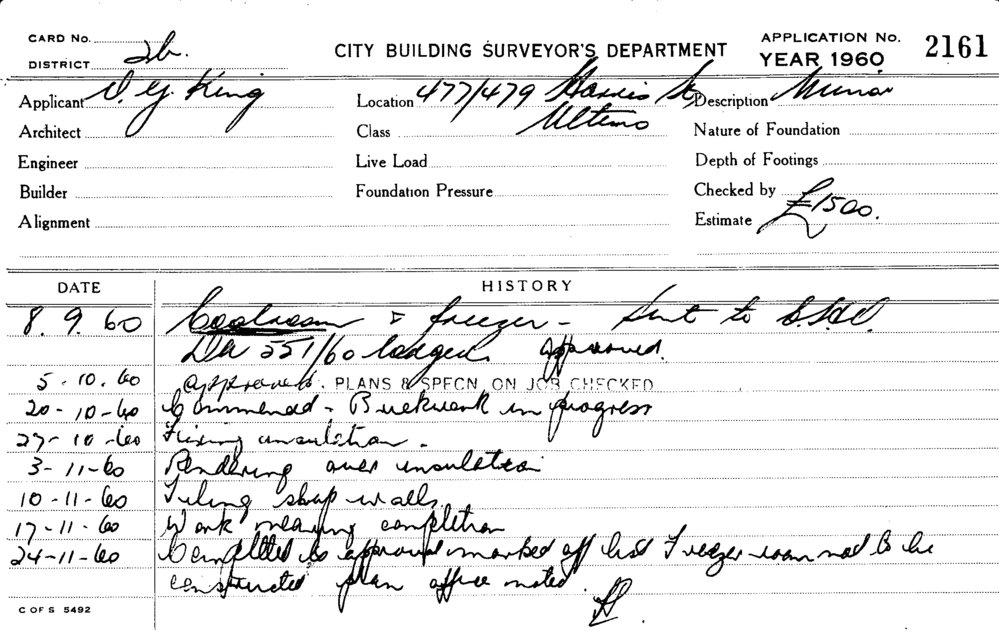 CARD No.
DISTRICT 2b.
CITY BUILDING SURVEYOR'S DEPARTMENT
APPLICATION No. 2161
YEAR 1960
Applicant D. G. King
Location 477/479 Harris St,
Ultimo
Description Minor
Architect
Class
Nature of Foundation
Engineer
Live Load
Depth of Footings
Builder
Foundation Pressure
Checked by
Alignment
Estimate £1500.
DATE HISTORY
8. 9. 60 Coolroom & freezer - Sent to
DA 551/60 lodged. approved.
5-10.60 approved. PLANS & SPECN. ON JOB CHECKED
20-10-60 Commenced - Brickwork in progress
27-10-60 Fixing insulation -
3-11-60 Rendering over insulation
10-11-60 Tiling shop walls
17-11-60 Work nearing completion
24-11-60 Completed as approved marked off list Freezer room not to be
constructed plan office noted
C OF S 5492